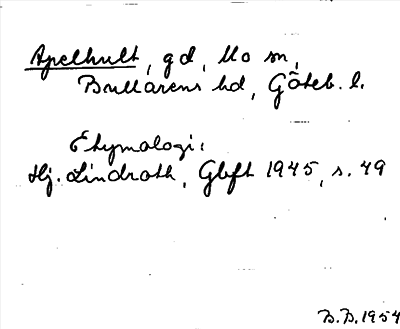 Apelhult, gd, Mo sn,
Bullarens hd, Göteb. l.
Etymologi:
Hj. Lindroth, Gbft 1945, s. 49
B.B. 1954